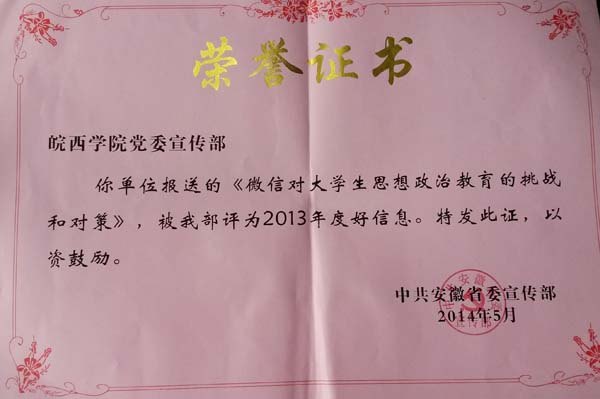 荣誉证书
皖西学院党委宣传部
你单位报送的《微信对大学生思想政治教育的挑战
和对策》，被我部评为2013年度好信息。特发此证，以
资鼓励。
中共安徽省委宣传部
2014年5月